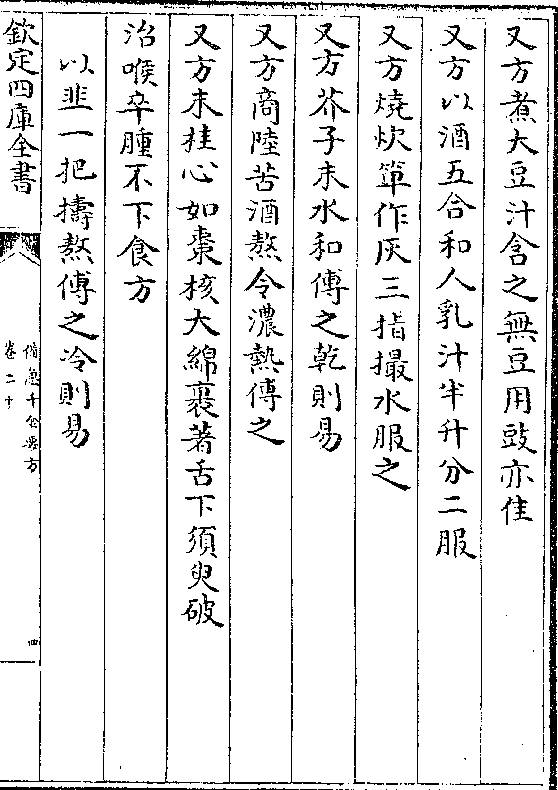 又方煮大豆汁含之無豆用豉亦佳
又方以酒五合和人乳汁半升分二服
又方燒炊箄作灰三指撮水服之
又方芥子末水和傅之乾則易
又方商陸苦酒熬令濃熱傅之
又方末桂心如棗核大綿裹著舌下須臾破
治喉卒腫不下食方
以韭一把擣熬傅之冷則易
欽定四庫全書
備急千金要方
卷二十
四